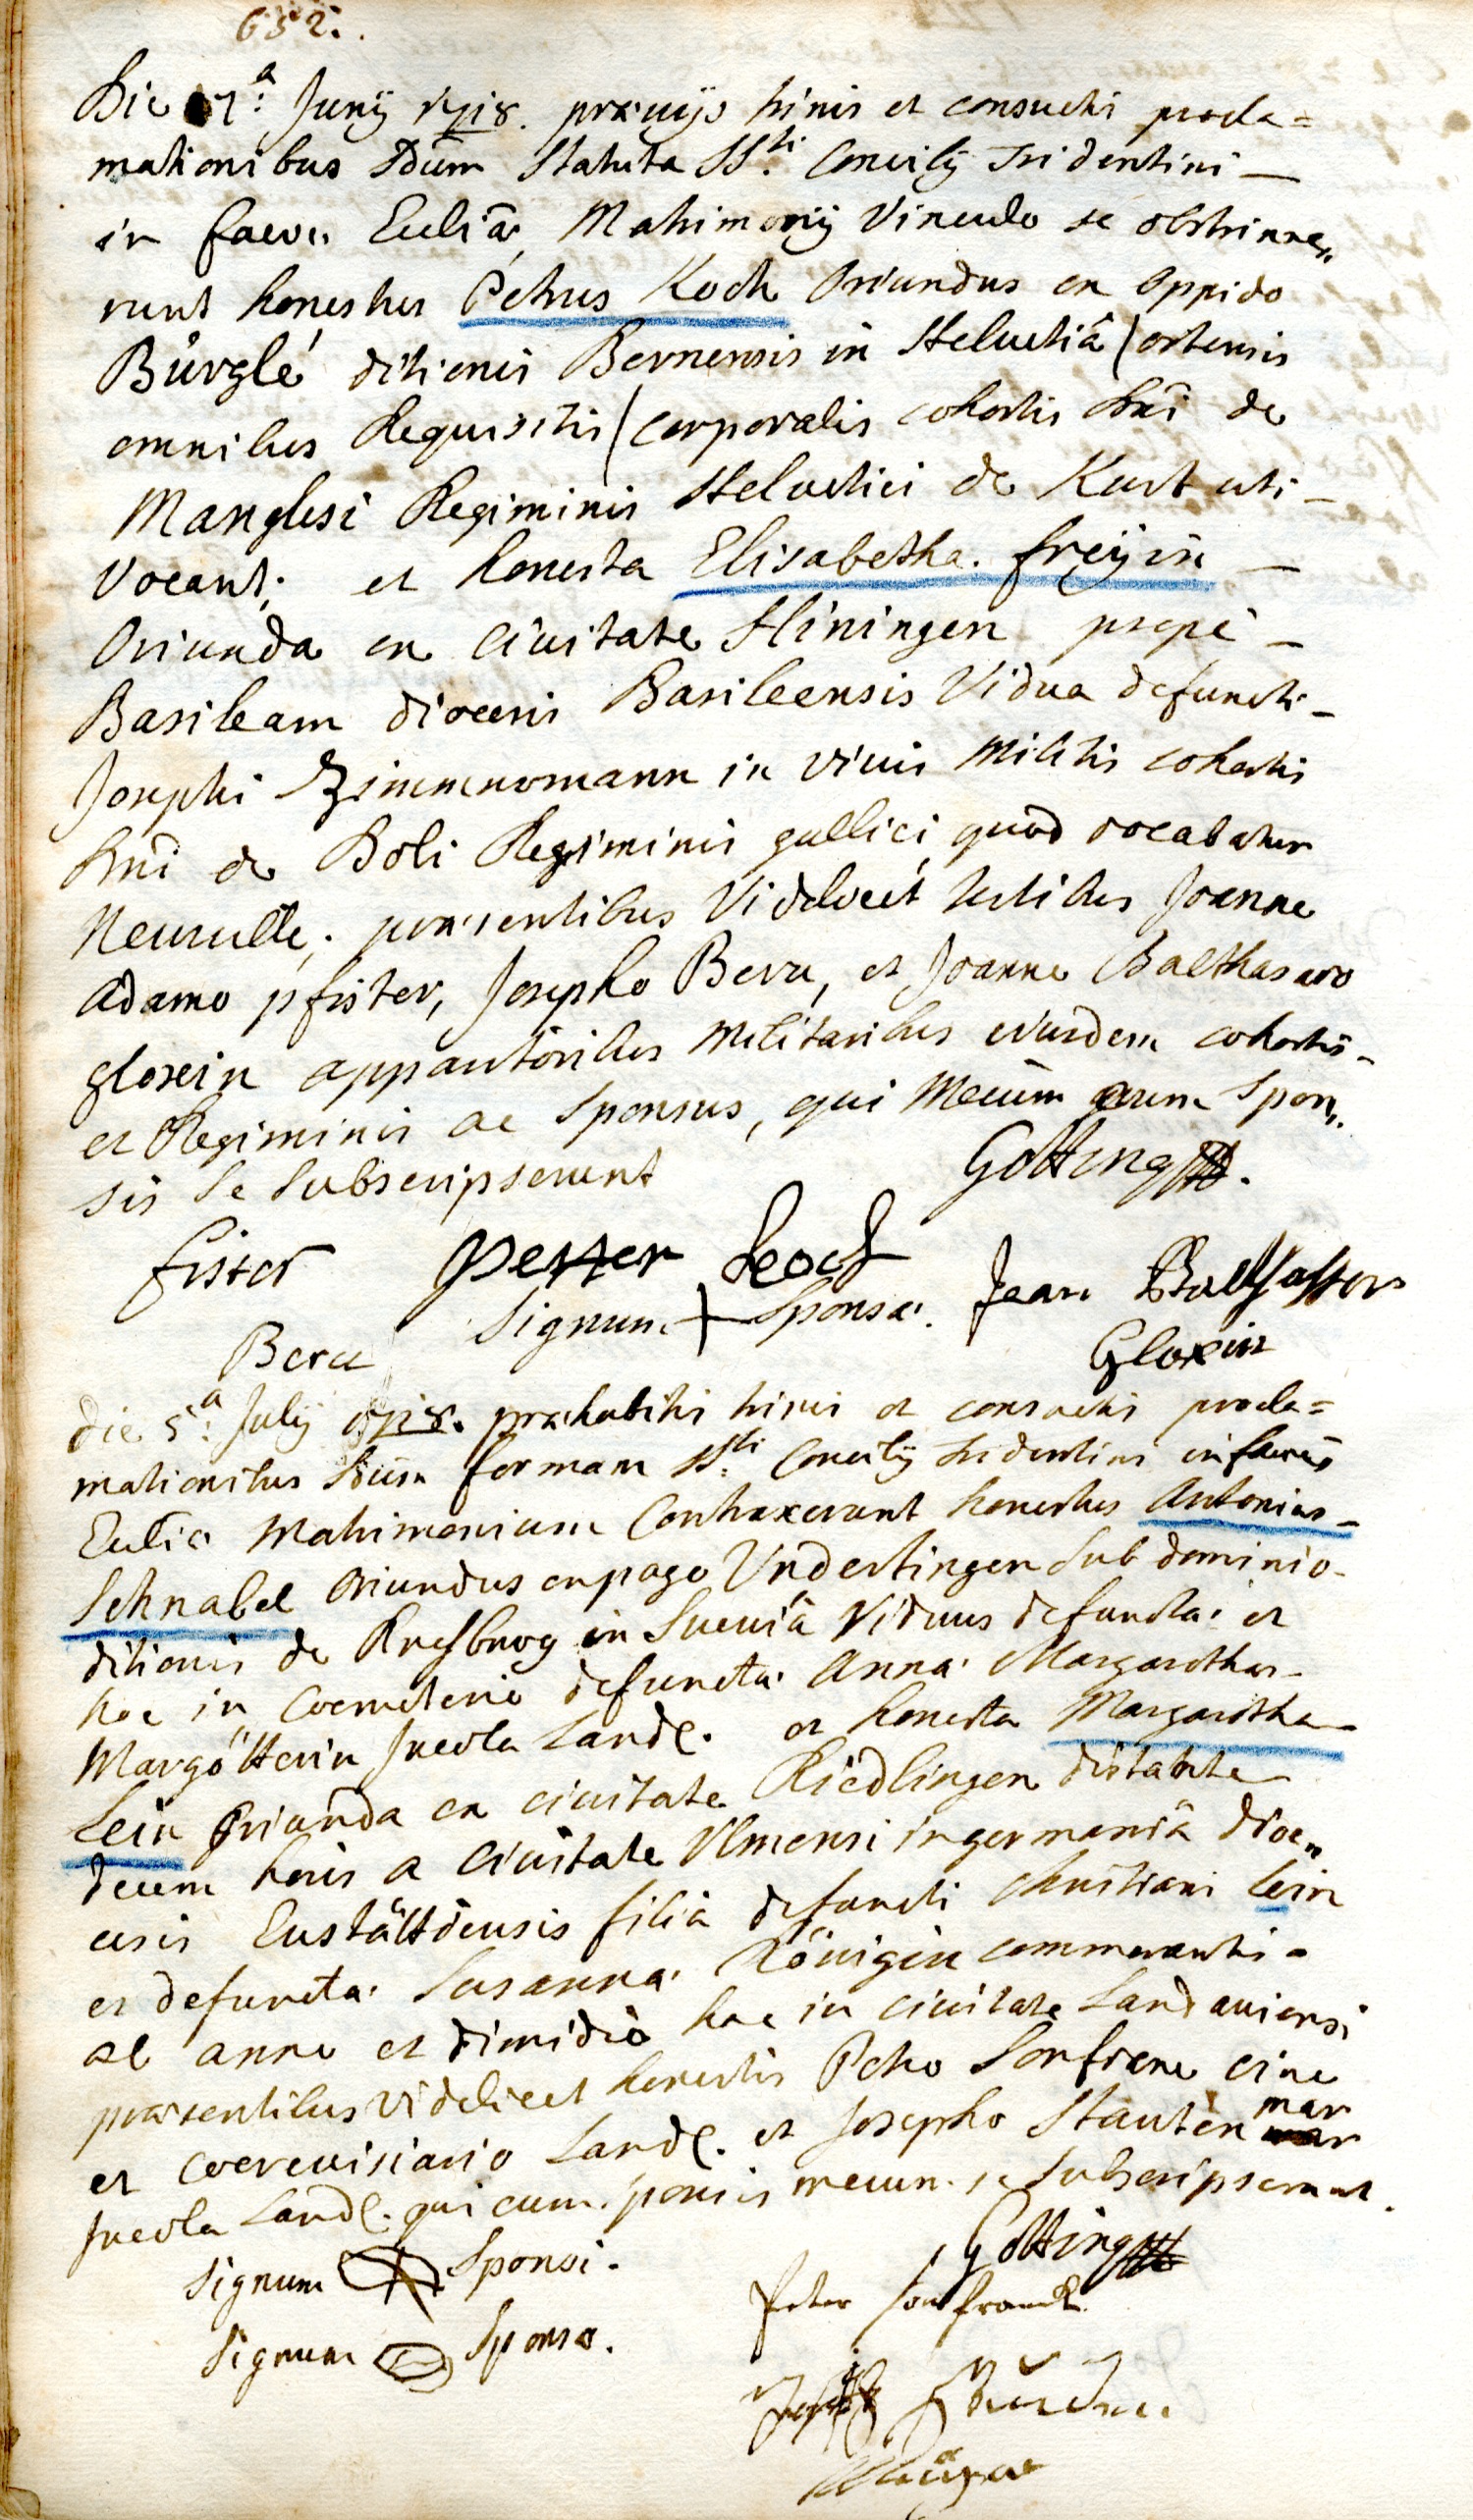 652.
Die 7a: Junij 1718. praevijs trinis et consuetis procla=
mationibus sdum Statuta SSti Concilij Tridentini —
in facie Eccliae Matrimonij Vinculo se obstrinxe„
runt honestus Petrus Koch Oriundus ex oppido
Bürglé ditionis Bernensis in Helvetiâ (ortensis
omnibus Requisitis) corporalis cohortis Dni de
Manglesi Regiminis Helvetici de Kurt uti —
Vocant; et honesta Elisabetha freÿin —
Oriunda ex Civitate Hiningen prope —
Basileam dioecesis Basileensis Vidua defuncti —
Josephi Zimmermann in vivis Militis cohortis
Dni de Boli Regiminis gallici quod vocabatur
praesentibus Videlicet testibus Joanne
Adamo pfister, Josepho Beru, et Joanne Balthasaro
gloxin apparitoribus Militaribus eiusdem cohortis —
et Regiminis ac Sponsus, qui Mecum Spon„
sis Se Subscripserunt
Gotting
fister Petter Koch Jean Balthasser
Signum + Sponsae.
Beru Gloxin
die 5a: Julij 1718. praehabitis trinis et consuetis procla=
mationibus Sdum formam SSti Concilij tridentini in facie
Eccliae Matrimonium Contraxerunt honestus Antonius —
Schnabel Oriundus ex pago Undertingen Sub dominio
ditionis de in Sueviâ Viduus defunctae et
hoc in Coemeterio defunctae Annae Margarethae —
Margötterin Incola Land. et honesta Margaretha —
Lein Oriunda ex civitate Riedlingen distante
decem horis a Civitate Ulmensi in germaniâ dioe„
cesis filia defuncti Christiani Lein
et defunctae Susannae Königin commoranti —
ab anno et dimidio hac in civitate Landaviensi
praesentibus Videlicet honestis Petro Sonfranc cive
et coerevisiario Land. et Josepho Stauten mar
Incola Land. qui cum mecum se Subscripserunt.
Gotting
Signum Sponsi.
Peter
Signum Sponsae.